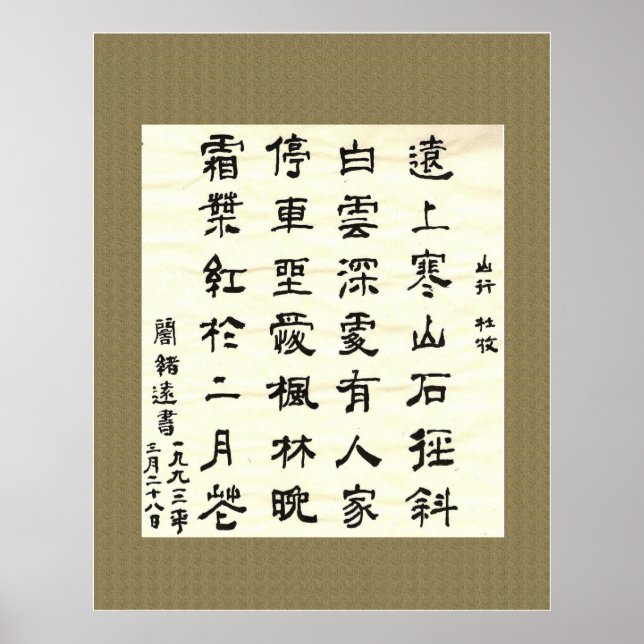 山行 杜牧
遠上寒山石徑斜
白雲深處有人家
停車坐愛楓林晚
霜葉紅於二月花
緒遠書
一九九三年
三月二十八日